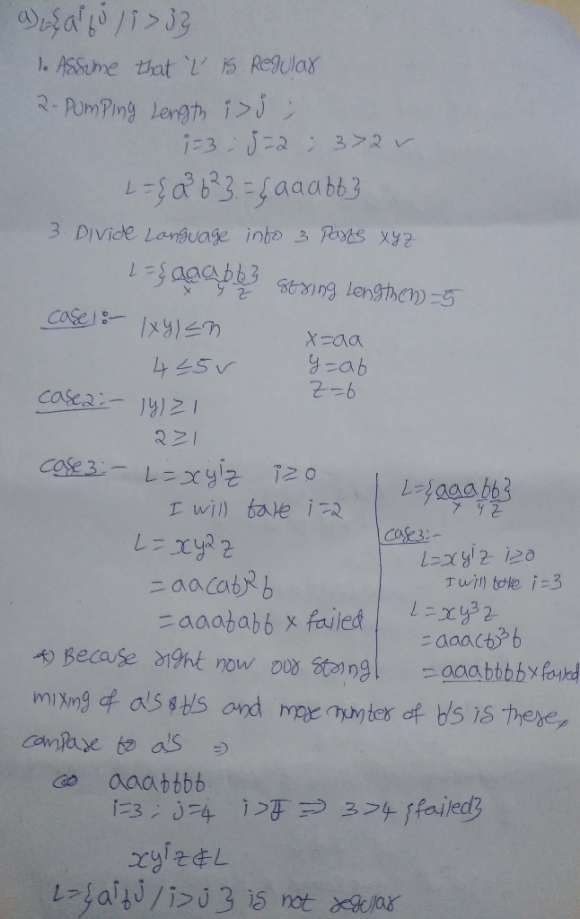 a) L={aⁱbʲ / i > j}
1. Assume that 'L' is Regular
2- Pumping Length i>j ;
i=3 ; j=2 ; 3>2 ✓
L={a³b²} = {aaabb}
3 Divide Language into 3 Parts xyz
L={aaabb} string Length(n)=5
x y z
case1:- |xy| ≤ n
4 ≤ 5 ✓
x=aa
y=ab
z=b
case2:- |y| ≥ 1
2 ≥ 1
case3:- L = xyⁱz i≥0
I will take i=2
L = xy²z
= aa(ab)²b
= aaababb × failed
L={aaabb}
x y z
case3:-
L=xyⁱz i≥0
I will take i=3
L = xy³z
= aaa(b)³b
= aaabbbb × failed
*) Because right now our string
mixing of a's & b's and more number of b's is there,
compare to a's ⇒
aaabbbb
i=3 ; j=4 i>j ⇒ 3>4 {failed}
xyⁱz∉L
L={aⁱbʲ / i>j} is not regular